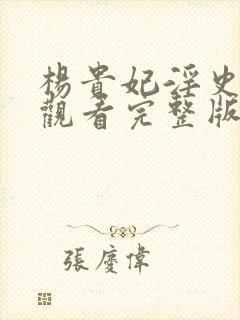 楊貴妃淫史
觀看完整版
張慶偉